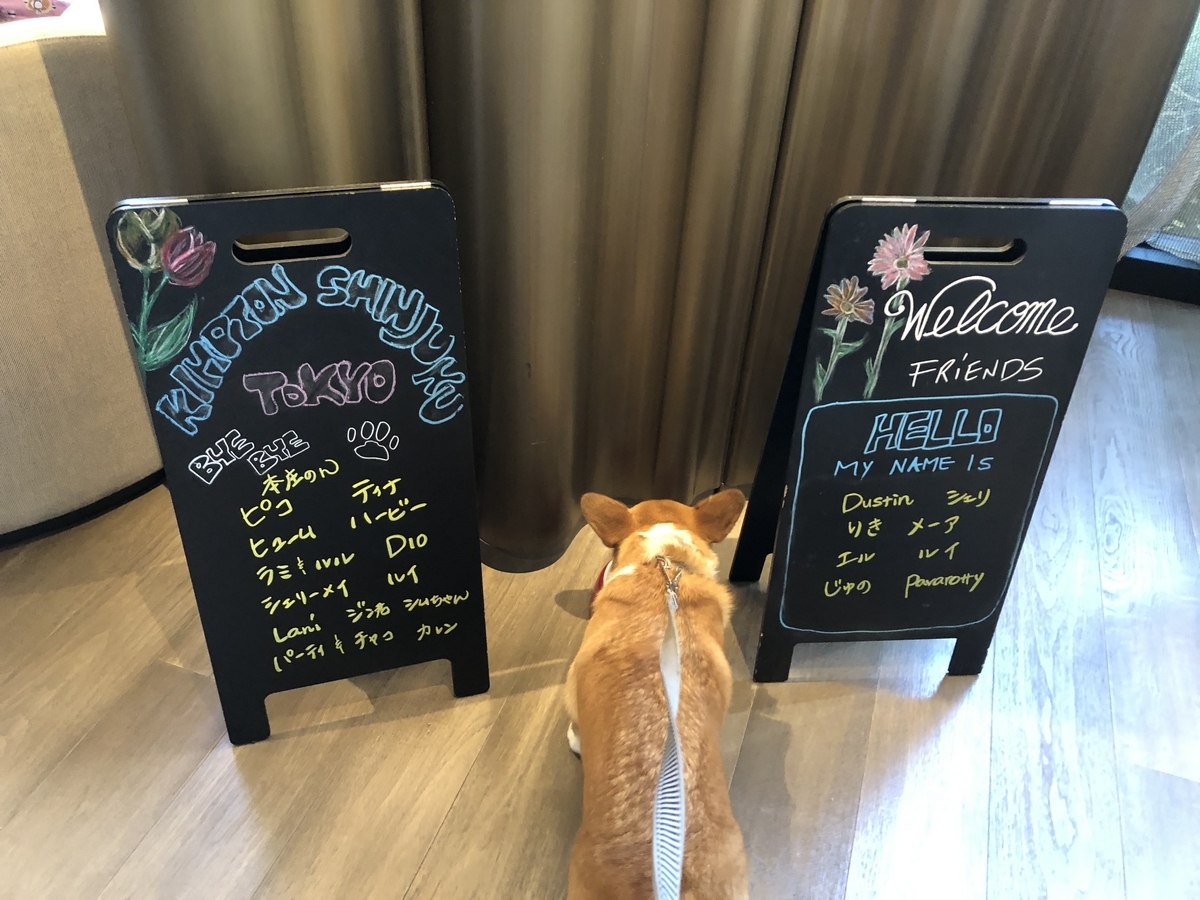 KIMPTON SHINJUKU
TOKYO
BYE BYE
本庄のん
ピコ ティナ
ヒューム ハービー
ラミ & ルル DIO
シェリーメイ ルイ
Lani ジン君 シムちゃん
パーティ & チャコ カレン
Welcome
FRiENDS
HELLO
MY NAME IS
Dustin シェリ
りき メーア
エル ルイ
じゅの Pavarotty